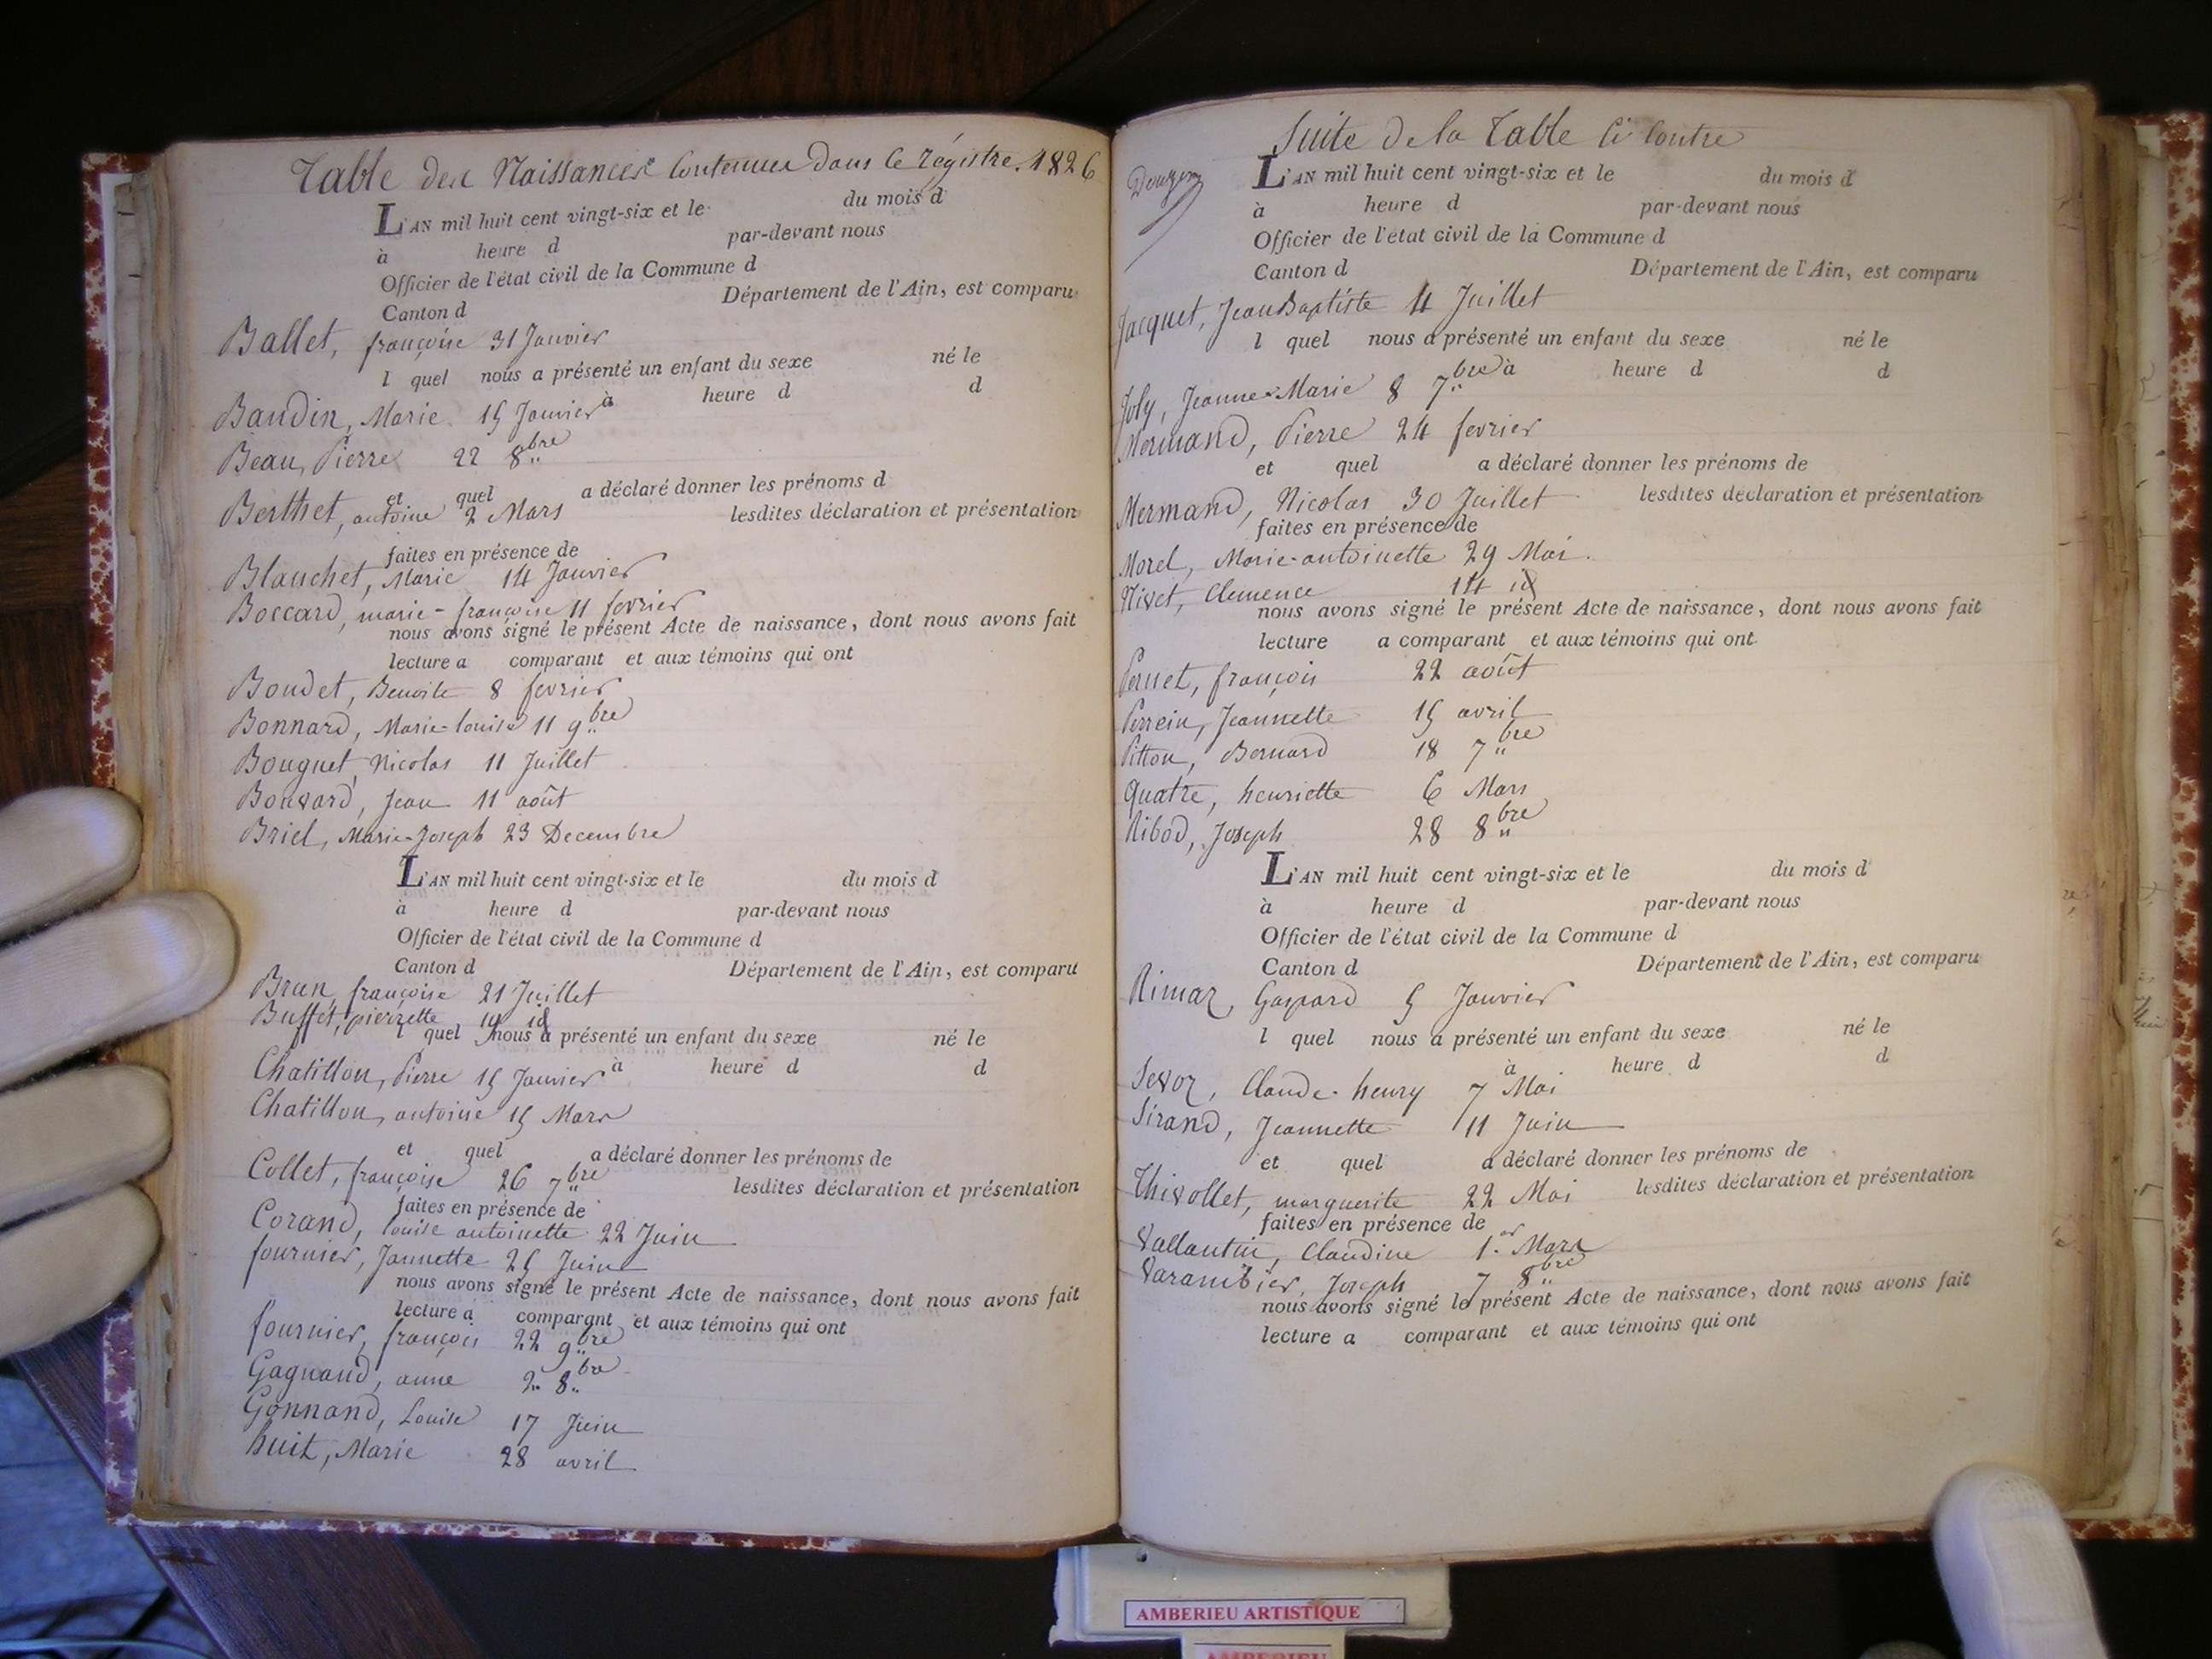 Table des Naissances Contenues dans le régistre. 1826
L'AN mil huit cent vingt-six et le du mois d
à heure d par-devant nous
Officier de l'état civil de la Commune d
Canton d Département de l'Ain, est comparu
Ballet, françoise 31 Janvier
l quel nous a présenté un enfant du sexe né le
à heure d d
Baudin, Marie 15 Janvier
Beau, Pierre 22 8bre
et quel a déclaré donner les prénoms d
Berthet, antoine 2 Mars
lesdites déclaration et présentation
faites en présence de
Blanchet, Marie 14 Janvier
Boccard, marie-françoise 11 fevrier
nous avons signé le présent Acte de naissance, dont nous avons fait
lecture a comparant et aux témoins qui ont
Boudet, Benoite 8 fevrier
Bonnard, Marie-louise 11 9bre
Bouguet, Nicolas 11 Juillet
Bouvard, Jean 11 août
Briel, Marie-Joseph 23 Decembre
L'AN mil huit cent vingt-six et le du mois d
à heure d par-devant nous
Officier de l'état civil de la Commune d
Canton d Département de l'Ain, est comparu
Brun, françoise 21 Juillet
Buffet, pierrette 14 id
l quel nous a présenté un enfant du sexe né le
à heure d d
Chatillon, Pierre 15 Janvier
Chatillon, antoine 15 Mars
et quel a déclaré donner les prénoms de
Collet, françoise 26 7bre
lesdites déclaration et présentation
faites en présence de
Corand, louise antoinette 22 Juin
fournier, Jannette 25 Juin
nous avons signé le présent Acte de naissance, dont nous avons fait
lecture a comparant et aux témoins qui ont
fournier, françois 22 9bre
Gagnand, anne 2 8bre
Gonnand, Louise 17 Juin
huit, Marie 28 avril
Suite de la Table Ci Contre
Douzon
L'AN mil huit cent vingt-six et le du mois d
à heure d par-devant nous
Officier de l'état civil de la Commune d
Canton d Département de l'Ain, est comparu
Jacquet, Jean Baptiste 4 Juillet
l quel nous a présenté un enfant du sexe né le
à heure d d
Joly, Jeanne-Marie 8 7bre
Mermand, Pierre 24 fevrier
et quel a déclaré donner les prénoms de
Mermand, Nicolas 30 Juillet
lesdites déclaration et présentation
faites en présence de
Morel, Marie-antoinette 29 Mai.
Nivet, Clemence 14 id
nous avons signé le présent Acte de naissance, dont nous avons fait
lecture a comparant et aux témoins qui ont
Pernet, françois 22 août
Perrein, Jeannette 15 avril
Pitton, Bernard 18 7bre
Quatre, henriette 6 Mars
Ribod, Joseph 28 8bre
L'AN mil huit cent vingt-six et le du mois d
à heure d par-devant nous
Officier de l'état civil de la Commune d
Canton d Département de l'Ain, est comparu
Rimaz, Gaspard 5 Janvier
l quel nous a présenté un enfant du sexe né le
à heure d d
Sevoz, Claude-henry 7 Mai
Sirand, Jeannette 11 Juin
et quel a déclaré donner les prénoms de
Thivollet, marguerite 22 Mai
lesdites déclaration et présentation
faites en présence de
Vallantin, Claudine 1.er Mars
Varambier, Joseph 7 8bre
nous avons signé le présent Acte de naissance, dont nous avons fait
lecture a comparant et aux témoins qui ont
AMBERIEU ARTISTIQUE
AMBERIEU